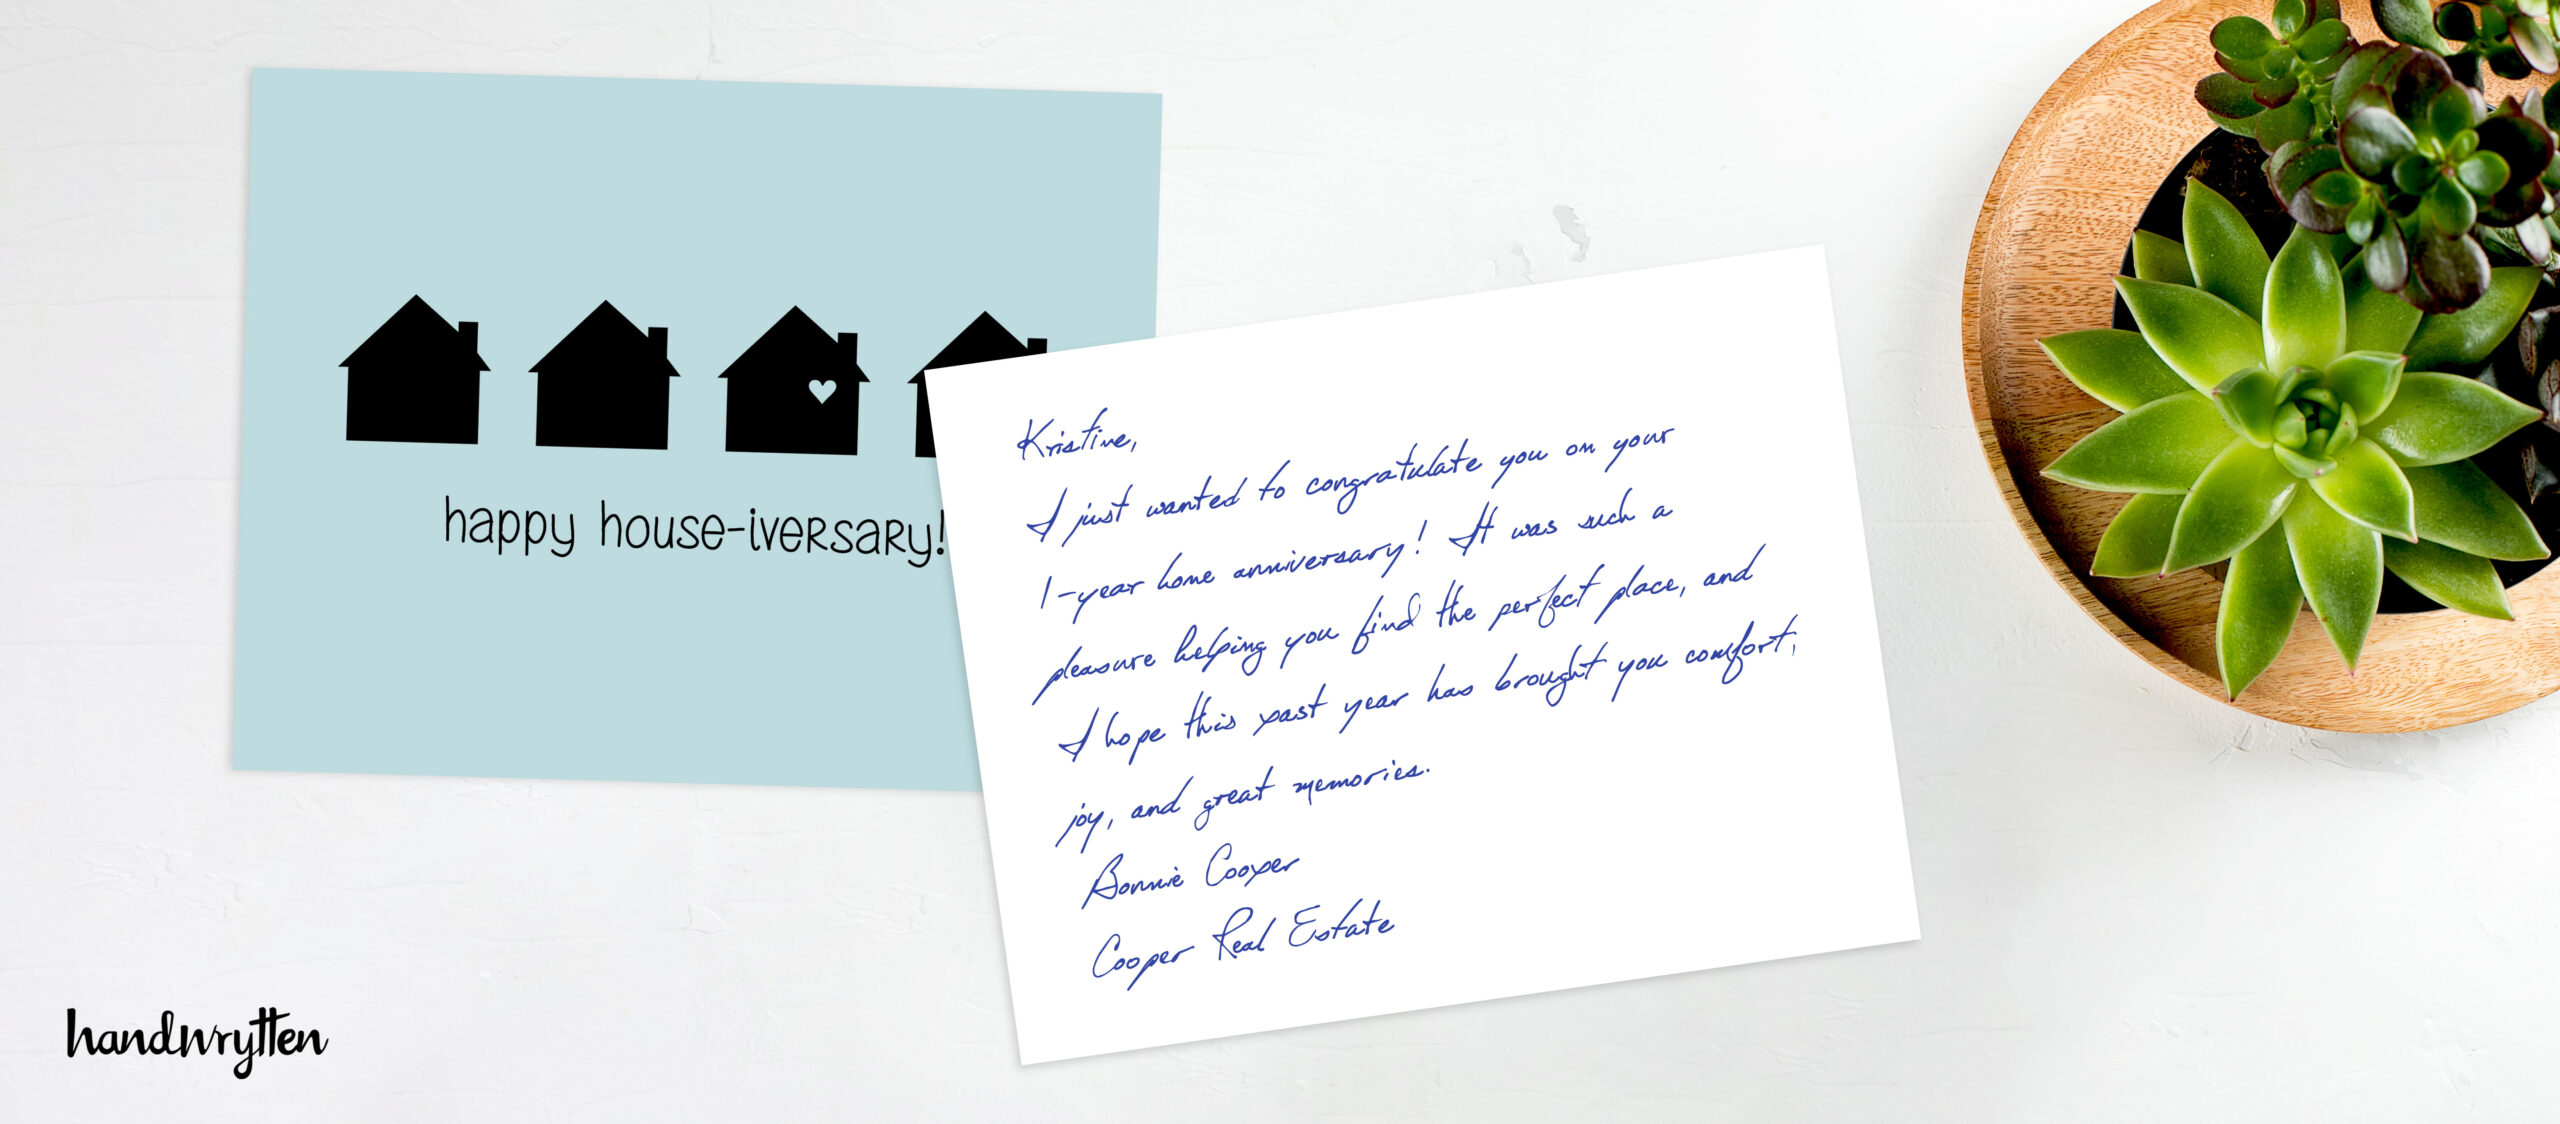 happy house-iversary!
Kristine,
I just wanted to congratulate you on your
1-year home anniversary! It was such a
pleasure helping you find the perfect place, and
I hope this past year has brought you comfort,
joy, and great memories.
Bonnie Cooper
Cooper Real Estate
handwrytten